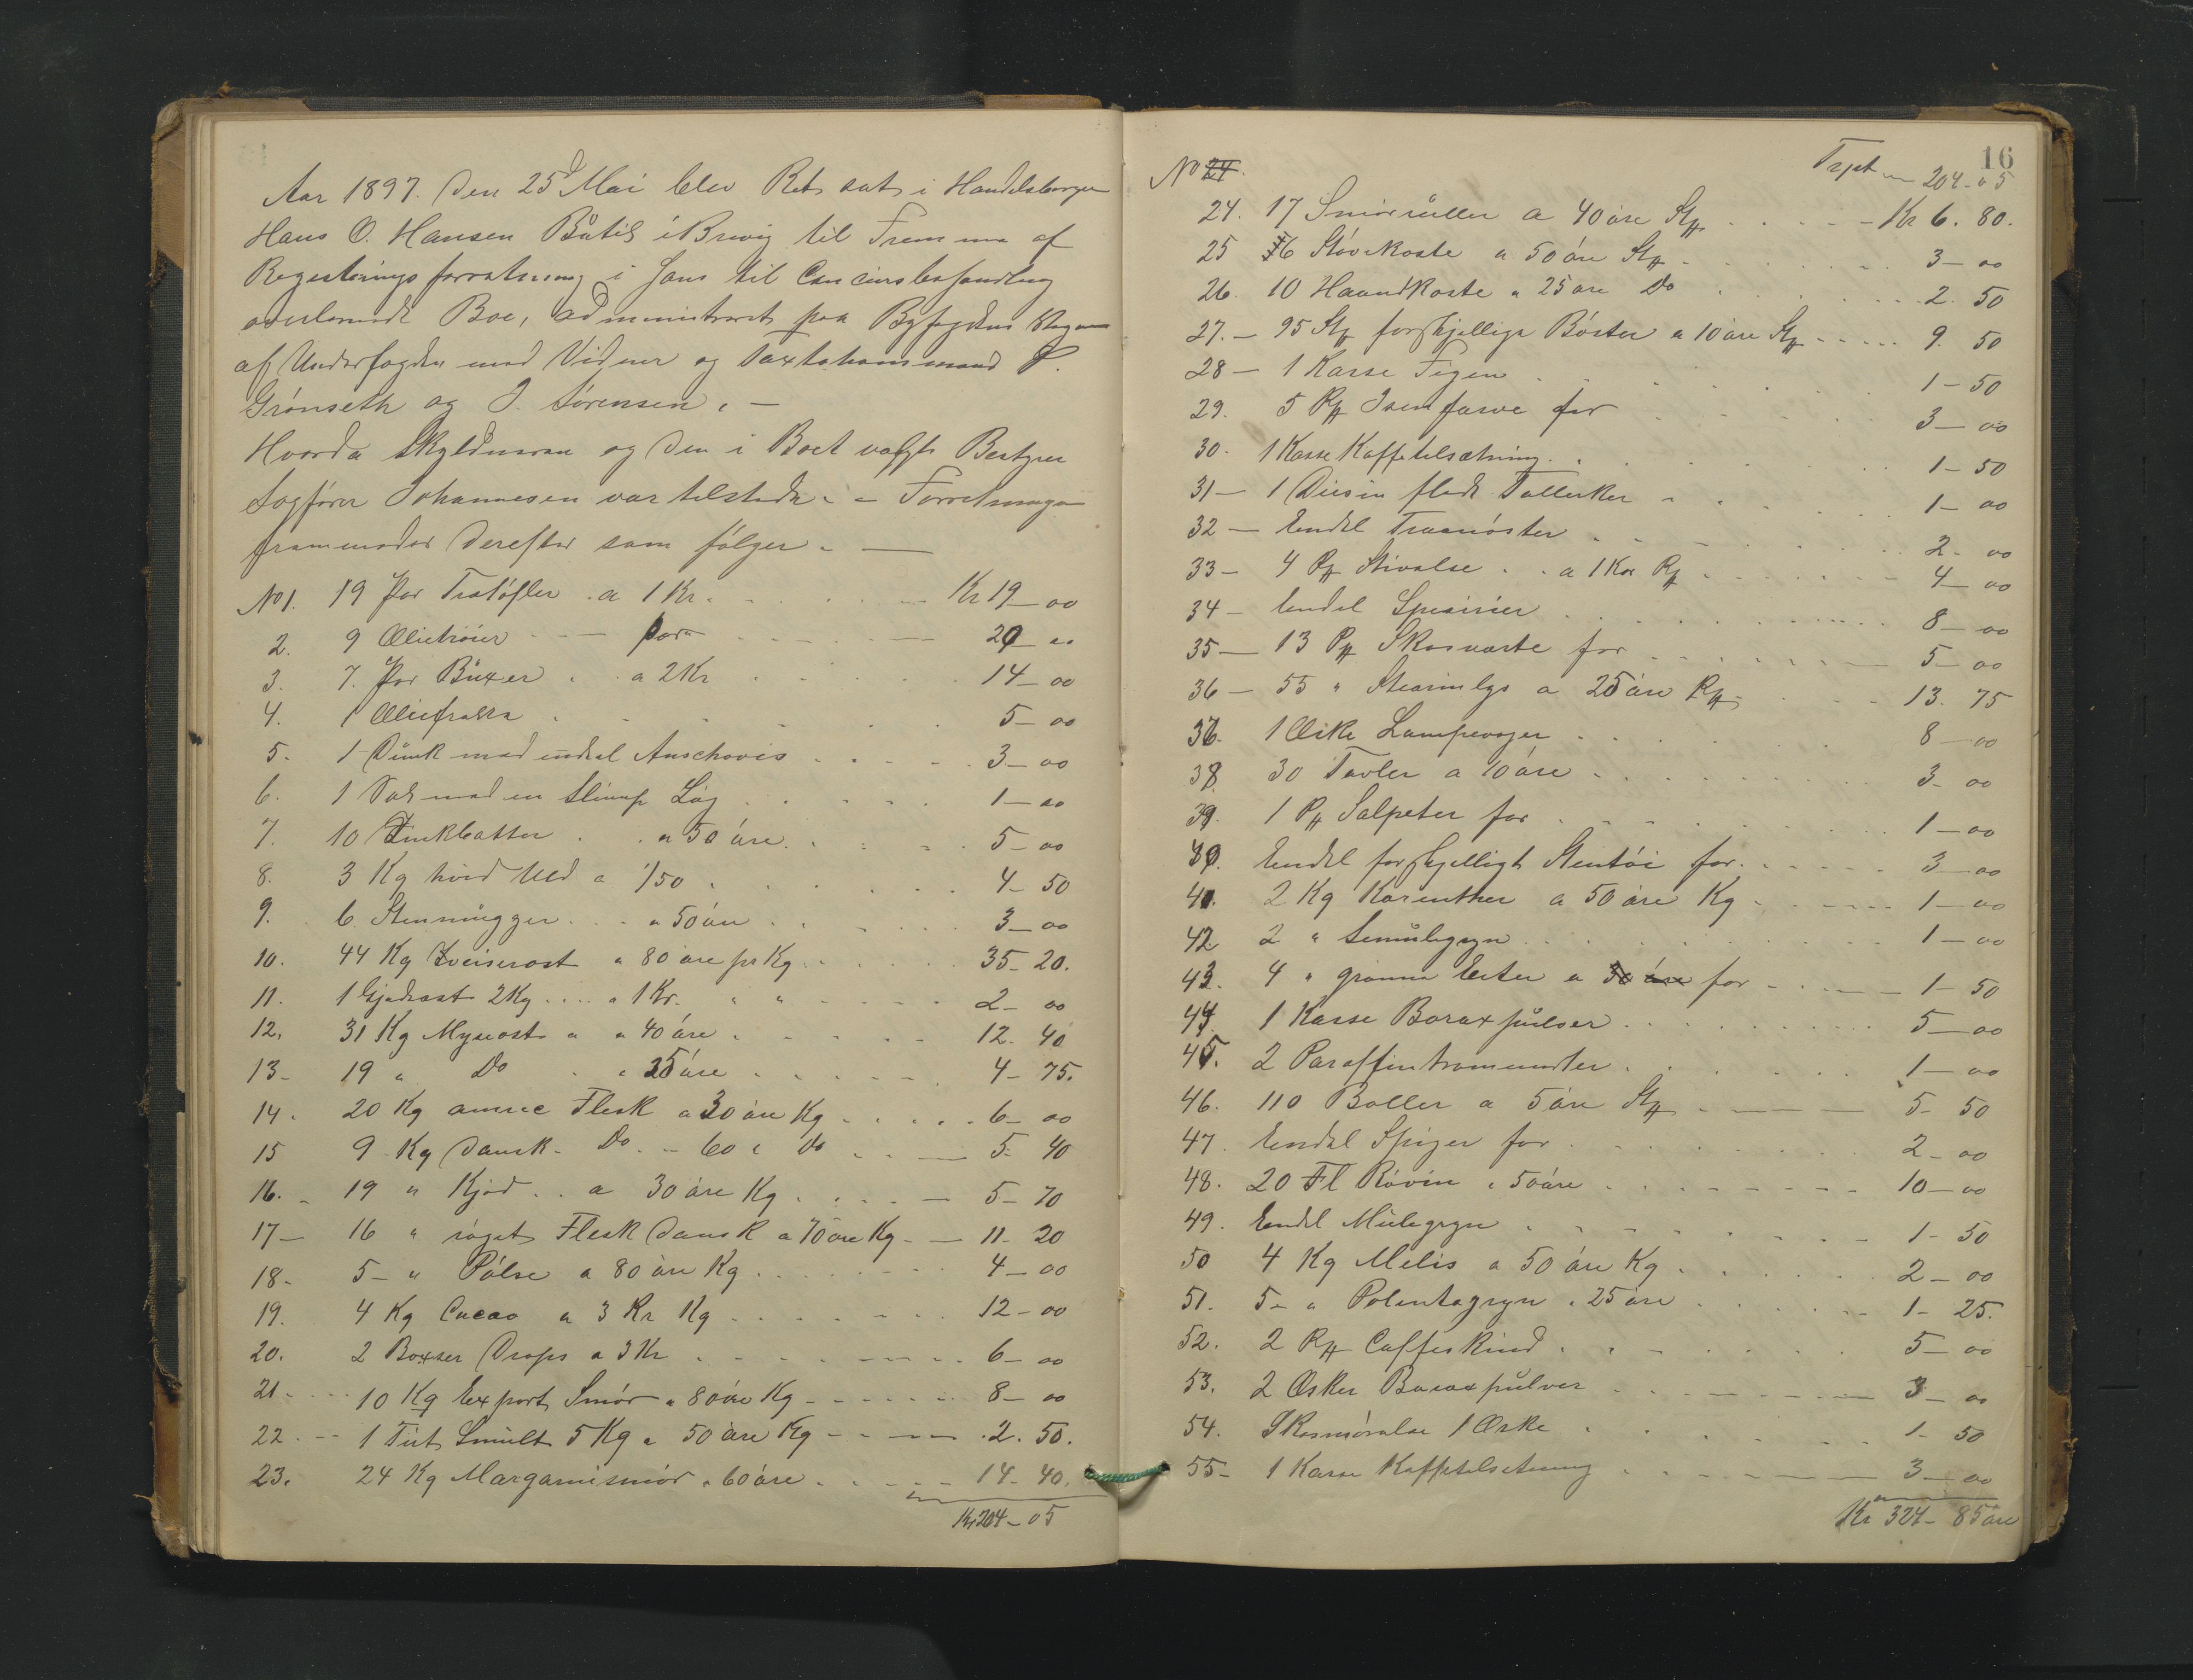 Aar 1897. Den 25d Mai blev Ret sat i Handelsborger
Hans O. Hansen Butik i Brevig til Fremme af
Registeringsforretning i hans til Concursbehandling
overleverede Boe, administreret paa Byfogdens Vegne
af Underfogden med Vidner og Taxtationsmænd P.
Grönseth og J. Sörensen. —
Hvorda Skyldneren og den i Boet valgte Bestyrer
Sagförer Johannesen var tilstede. — Forretningen
fremmedes Derefter som fölger. —
No 1. 19 Par Tratöfler a 1 Kr. Kr 19 – 00
2. 9 Olietröier par 20 – 00
3. 7. Par Buxer a 2 Kr 14 – 00
4. 1 Oliefrakke 5 – 00
5. 1 Dunk med endel Anschovis 3 – 00
6. 1 Sæk med en Slump Løg 1 – 00
7. 10 Zinkbötter a 50 öre. 5 – 00
8. 3 Kg hvid Uld a 1/50 4 – 50
9. 6 Stenmugger a 50 öre 3 – 00
10. 44 Kg Zveiserost a 80 öre pr Kg 35 – 20.
11. 1 Gjedeost 2 Kg a 1 Kr. 2 – 00
12. 31 Kg Myseost a a 40 öre 12. 40
13 – 19 " Do " 25 öre 4 – 75.
14. 20 Kg amric Flesk a 30 öre Kg 6 – 00
15 9 Kg Dansk Do 60 " do 5 – 40
16. 19 " Kjöd a 30 öre Kg 5 – 70
17 – 16 " röget Flesk Dansk a 70 öre Kg 11 – 20
18 – 5 – " Pölse a 80 öre Kg 4 – 00
19. 4 Kg Cacao a 3 Kr Kg 12 – 00
20. 2 Boxser Drops a 3 Kr 6 – 00
21 – 10 Kg Export Smör a 80 öre Kg 8 – 00
22 – 1 Tut Smult 5 Kg a 50 öre Kg 2. 50.
23. 24 Kg Margarinsmör a 60 öre 14 – 40.
Kr 204 – 05
16
No 24. Trpt 204 – 05
24. 17 Smörruller a 40 öre St Kr 6. 80.
25 6 Stövekoste a 50 öre St 3 – 00
26. 10 Haandkoste a 25 öre Do 2. 50
27. – 95 St forskjellige Börster a 10 öre St 9. 50
28 – 1 Kasse Figen 1 – 50
29. 5 Pk Isenfarve for 3 – 00
30. 1 Kasse Kaffetilsætning 1 – 50
31 – 1 Dusin flade Tallerker 1 – 00
32 – Endel Traanöster 2 – 00
33 – 4 Pk Stivelse a 1 Kr Pk 4 – 00
34 – Endel Speserier 8 – 00
35 – 13 Pk Skosværte for 5 – 00
36 – 55 " Stearinlys a 25 öre Pk 13. 75
37. 1 Æske Lampevæger 8 – 00
38 30 Tavler a 10 öre 3 – 00
39. 1 Pk Salpeter for 1 – 00
40. Endel forskjelligt Stentöi for 3 – 00
41. 2 Kg Korenther a 50 öre Kg 1 – 00
42 2 " Semulegryn 1 – 00
43. 4 " grönne Erter a 30 öre for 1 – 50
44 1 Kasse Boraxpulver 5 – 00
45. 2 Paraffintrommunter 1 – 00
46. 110 Boller a 5 öre St 5 – 50
47. Endel Spiger for 2 – 00
48. 20 Fl Rövin a 50 öre 10 – 00
49. Endel Mulegryn 1 – 50
50 4 Kg Melis a 50 öre Kg 2 – 00
51. 5 – " Polentagryn a 25 öre 1 – 25.
52. 2 Pk Caffeskind 5 – 00
53. 2 Æsker Boraxpulver 3 – 00
54. Skosmörelse 1 Æske 1 – 50
55 – 1 Kasse Kaffetilsetning 3 – 00
Kr 324 – 85 öre